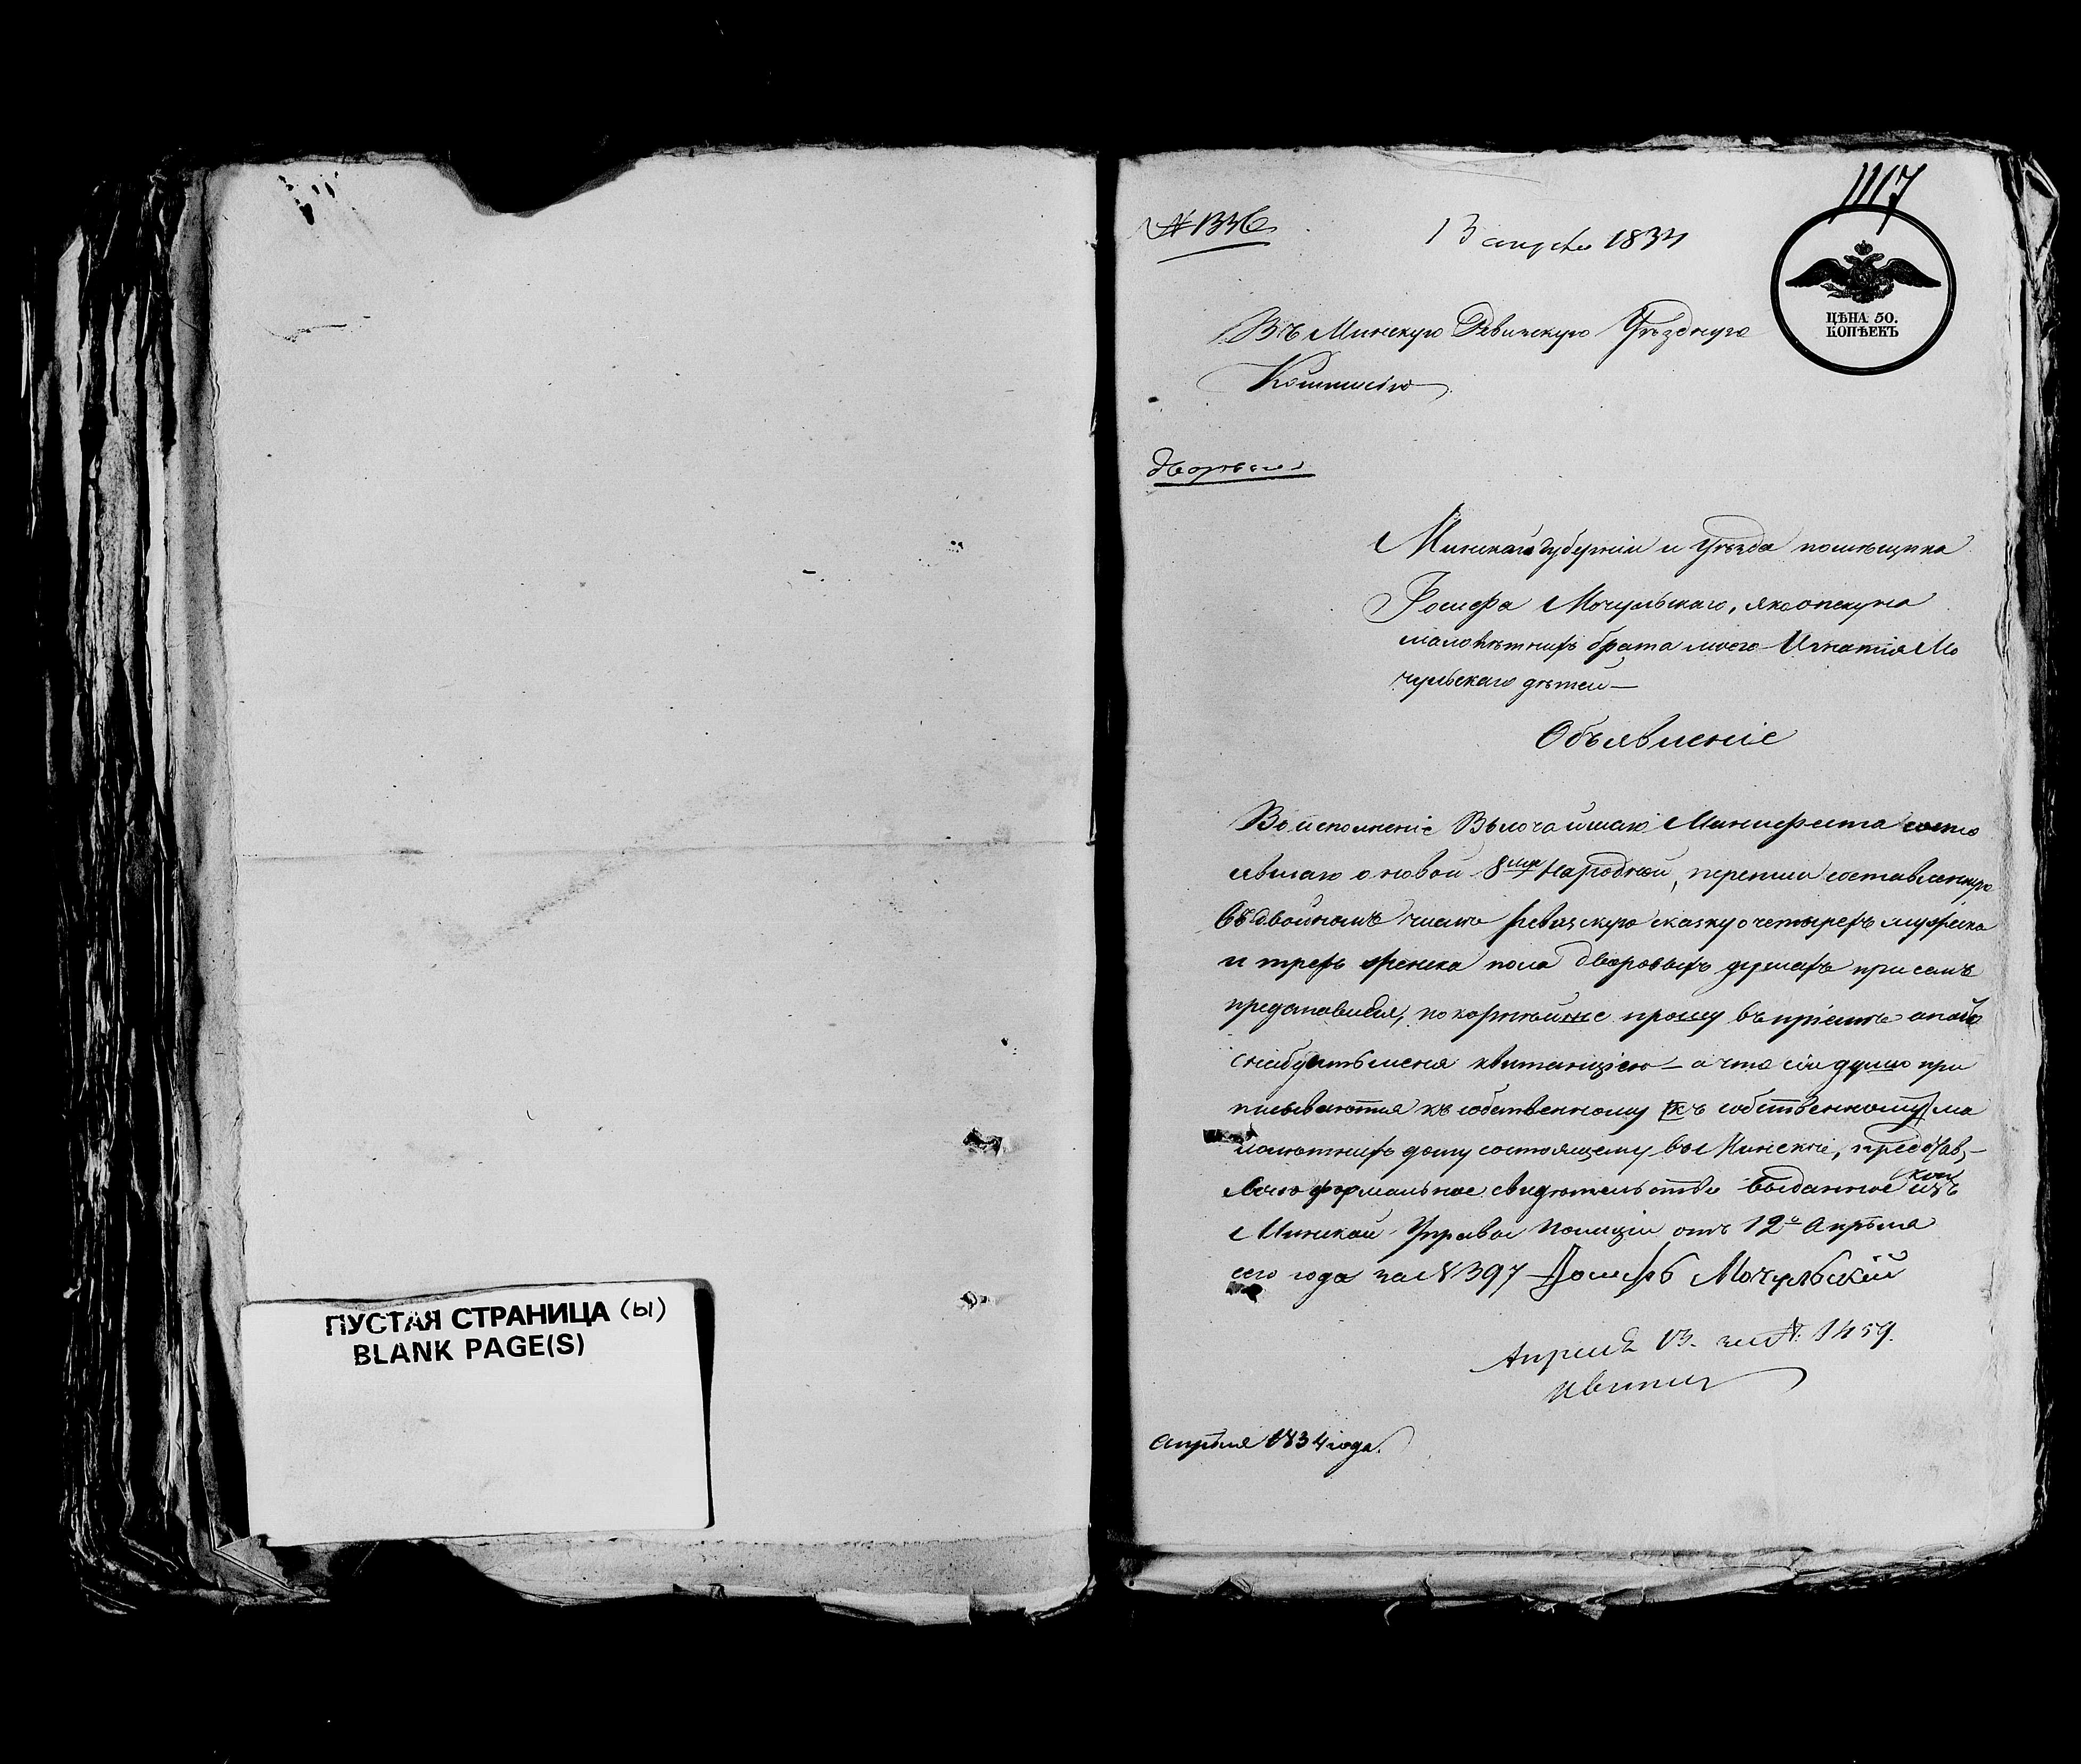 ПУСТАЯ СТРАНИЦА (ы)
BLANK PAGE(S)
1117
№ 1336
13 апреля 1834
ЦѢНА 50.
КОПѢЕКЪ
Въ Минскую Ревизскую Уѣздную
Коммисію
Минской Губерніи и Уѣзда помѣщика
Іосифа Мочульскаго, яко опекуна
малолѣтнихъ брата моего Игнатія Мо
чульскаго дѣтей —
Объявленіе
Во исполненіе Высочайшаго Манифеста состо
явшаго о новой 8мой Народной, переписи составленную
въ двойномъ числѣ ревизскую сказку о четырехъ мужеска
и трехъ женска пола дворовыхъ душахъ при семъ
представляя, покорнѣйше прошу въ пріемѣ оной
снабдить меня квитанціею — а что сіи души при
писываются къ собственному къ собственному ма
лолѣтнихъ дому состоящему въ Минскѣ, представ,-
ляю формальное свидѣтельство выданное изъ
Минской Управы Полиціи отъ 12го Апрѣля
сего года за № 397 Іосифъ Мочульскій
Апреля 13. за №. 1459.
Апрѣля 1834 года.